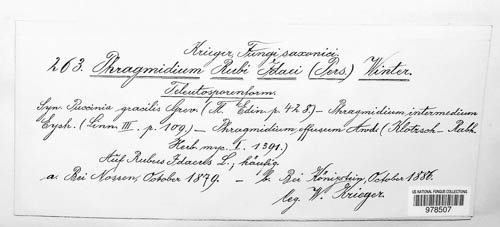 Krieger, Fungi saxonici
263. Phragmidium Rubi Idaei (Pers.) Winter.
Teleutosporenform.
Syn. Puccinia gracilis Grev. (Fl. Edin. p. 428) – Phragmidium intermedium
Eysh. (Linn. III. p. 109.) – Phragmidium effusum Awd. (Klotzsch-Rabh.
Herb. myc. I. 1391.)
Auf Rubus Idaeus L., häufig.
a. Bei Nossen, October 1879. – b. Bei Königstein, October 1886.
leg. W. Krieger.
US NATIONAL FUNGUS COLLECTIONS
978507